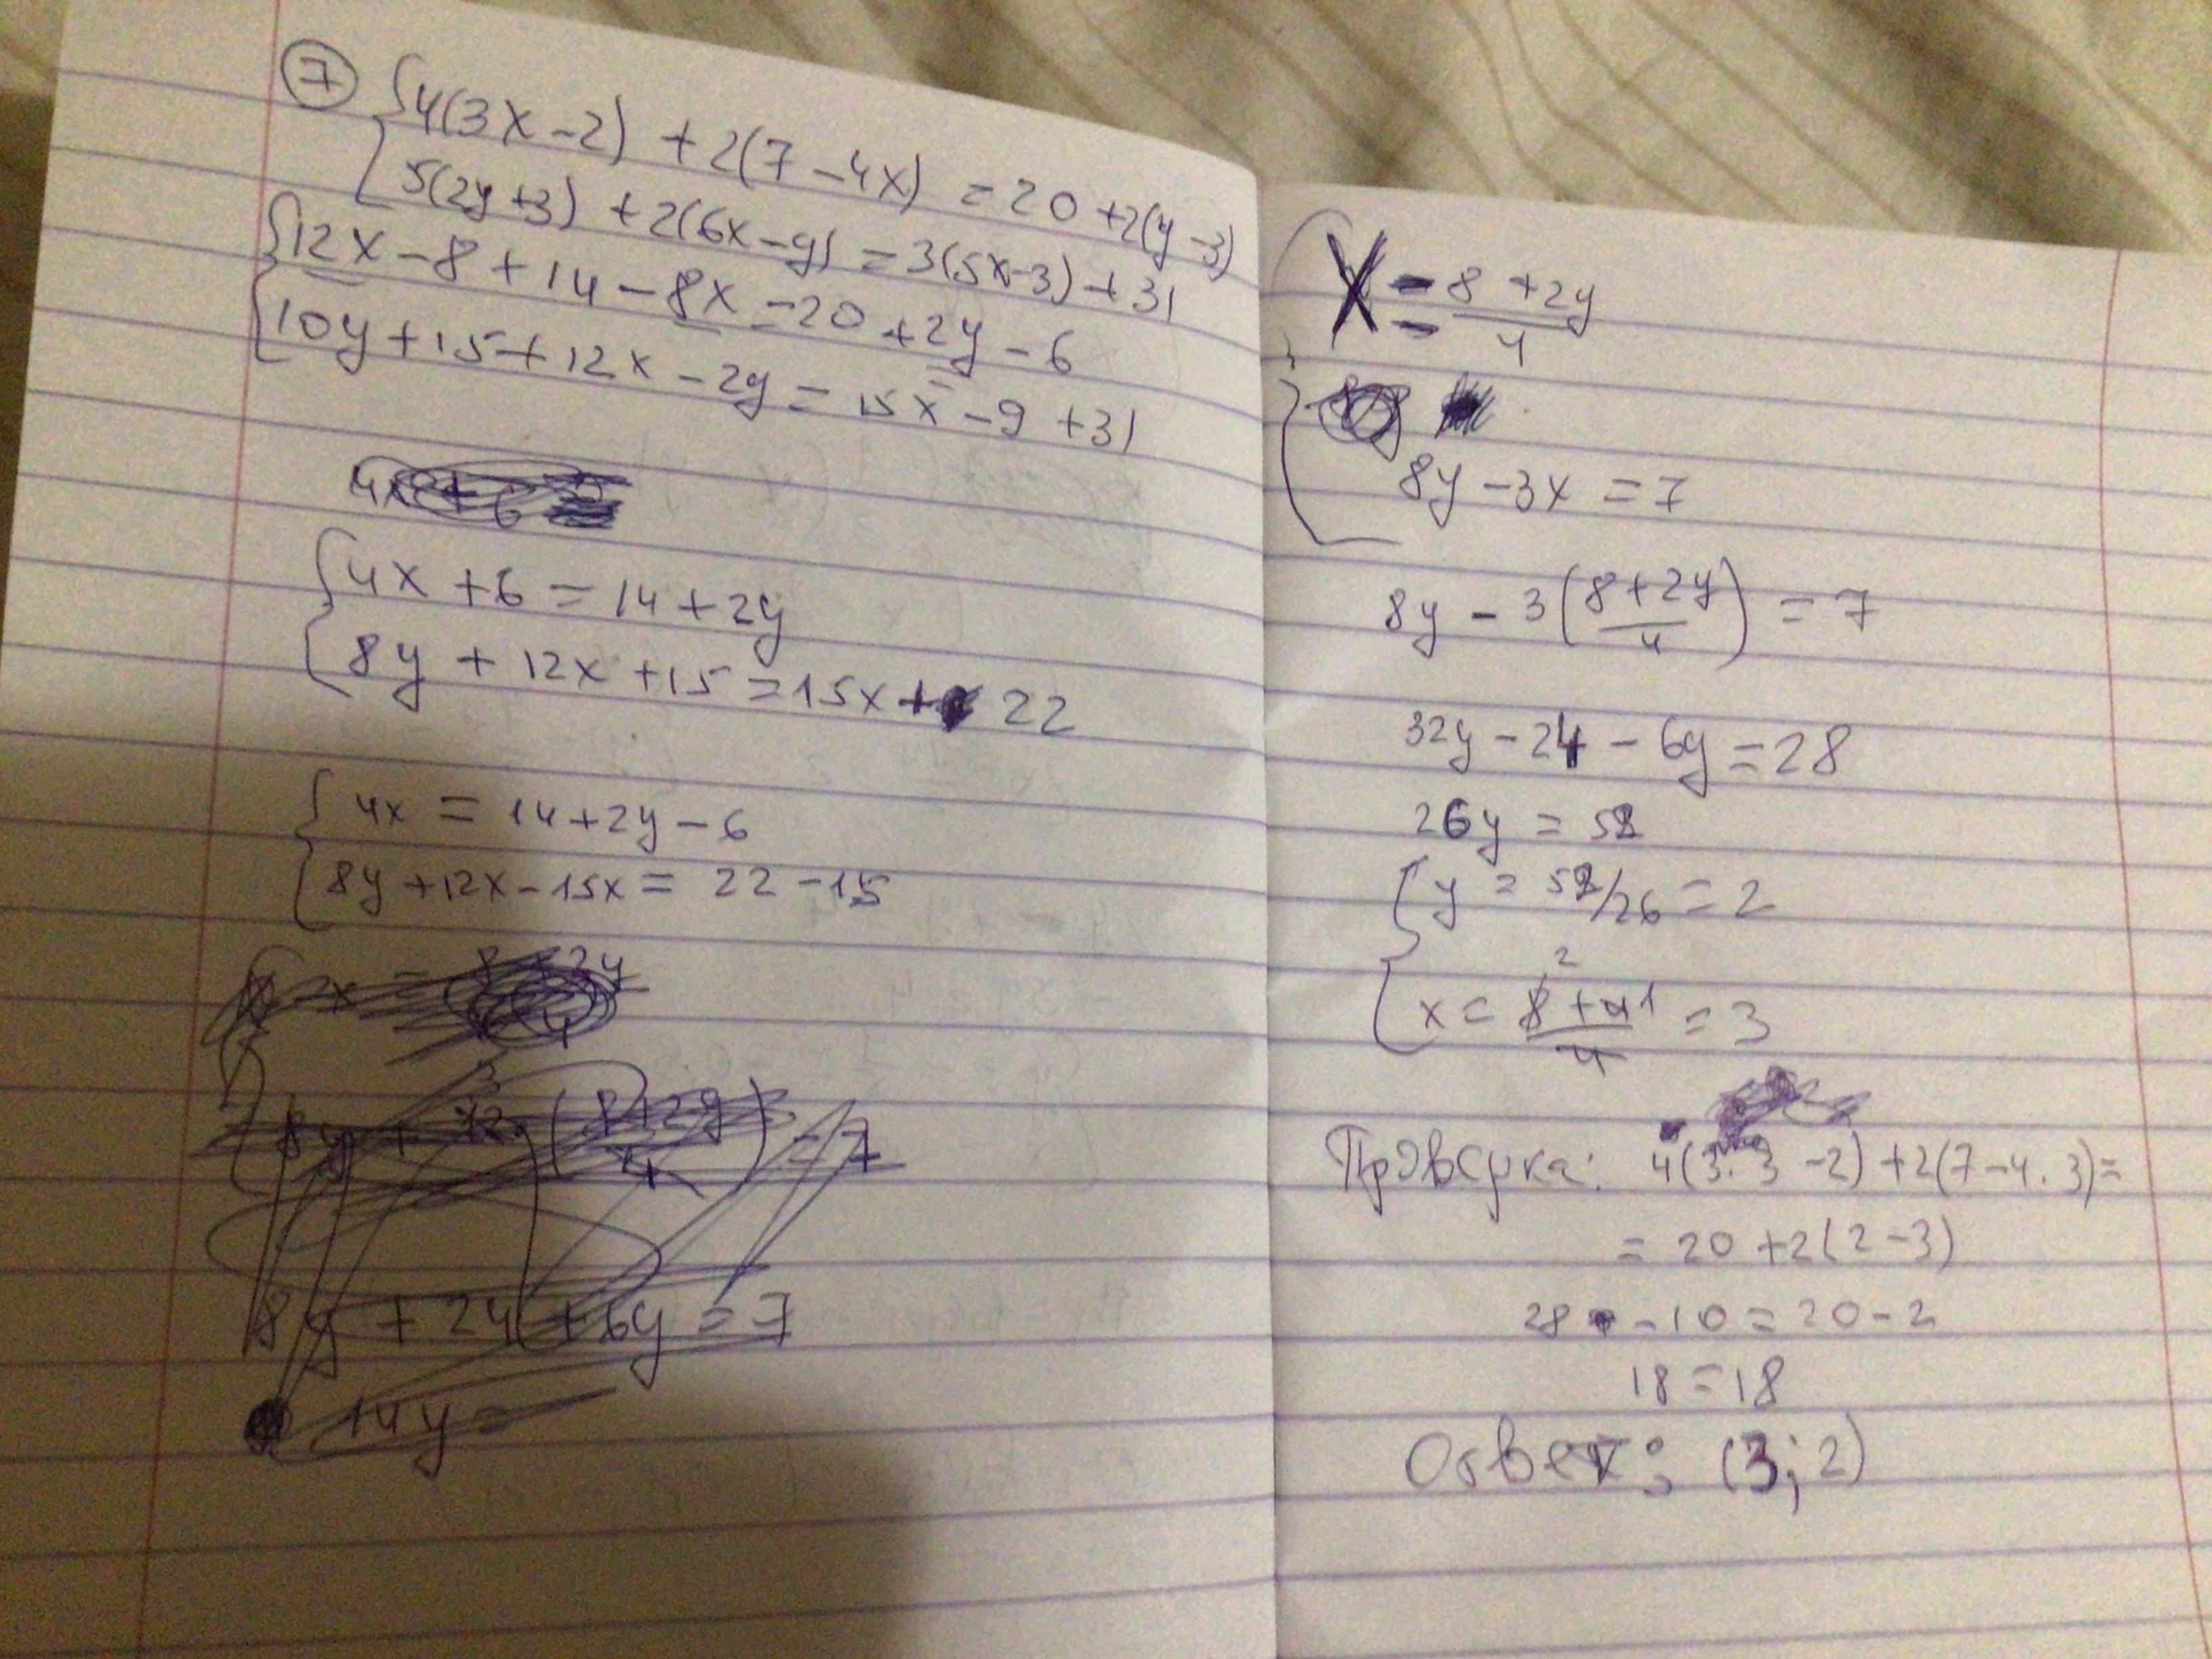 7 {4(3x-2) + 2(7-4x) = 20 + 2(y-3)
5(2y+3) + 2(6x-y) = 3(5x-3) + 31
{12x - 8 + 14 - 8x = 20 + 2y - 6
10y + 15 + 12x - 2y = 15x - 9 + 31
4x + 6
{4x + 6 = 14 + 2y
8y + 12x + 15 = 15x + 22
{4x = 14 + 2y - 6
8y + 12x - 15x = 22 - 15
x = 8+2y/4
8y + (8+2y/4) = 7
8y + 24 + 6y = 7
14y =
x = 8 + 2y/4
8y - 3x = 7
8y - 3(8+2y/4) = 7
32y - 24 - 6y = 28
26y = 52
{y = 52/26 = 2
x = 8+4/4 = 3
Проверка: 4(3·3 - 2) + 2(7 - 4·3) =
= 20 + 2(2-3)
28 - 10 = 20 - 2
18 = 18
Ответ: (3; 2)